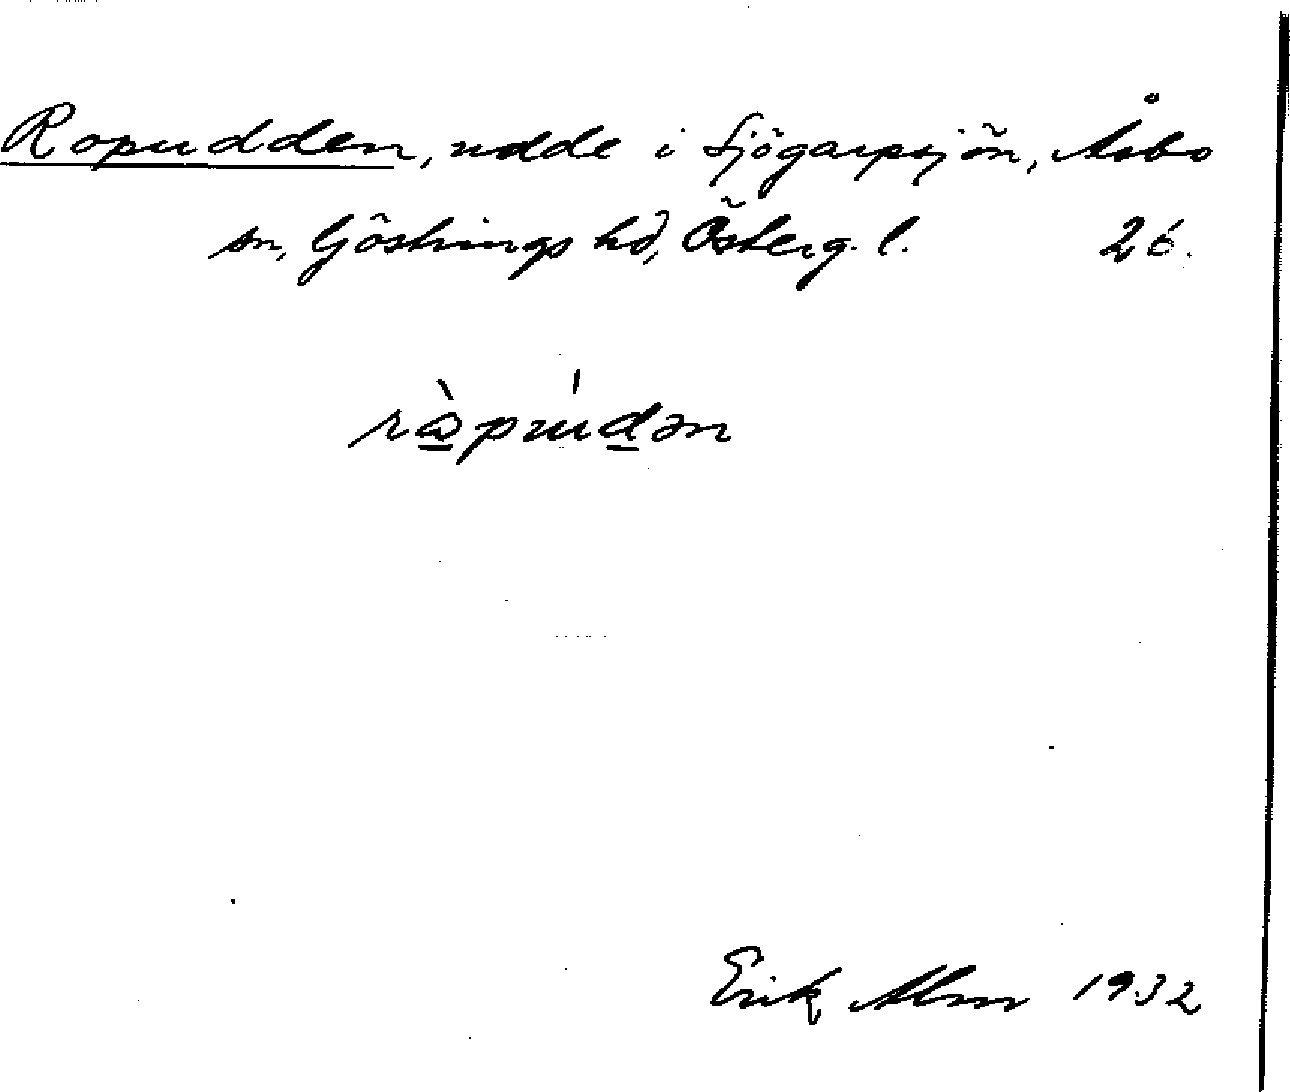 Ropudden, udde i Sjögarpsjön, Åsbo
sn, Göstrings hd, Österg. l. 26.
rὼpúdən
Erik Alm 1932